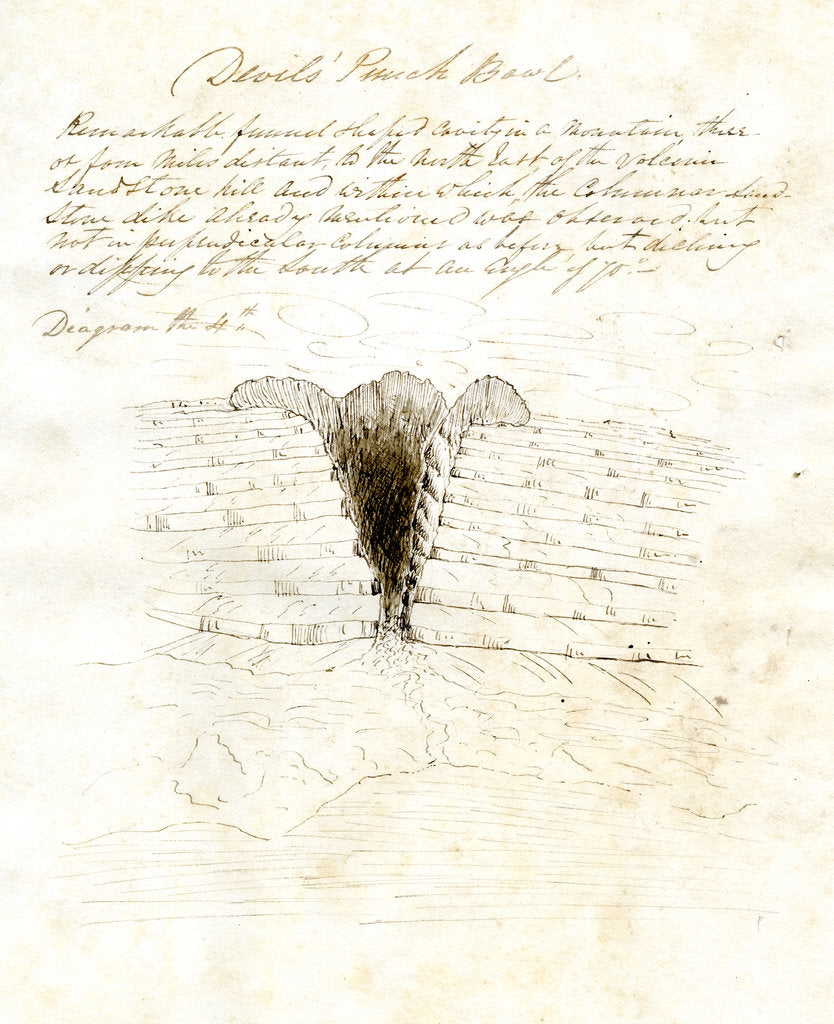 Devils' Punch Bowl.
Remarkable funnel shaped cavity in a mountain, three
or four miles distant, to the north East of the Volcanic
Sandstone hill and within which, the Columnar Sand-
stone dike already mentioned was observed. but
not in perpendicular Columns as before but declining
or dipping to the South at an angle of 70°
Diagram the 4th